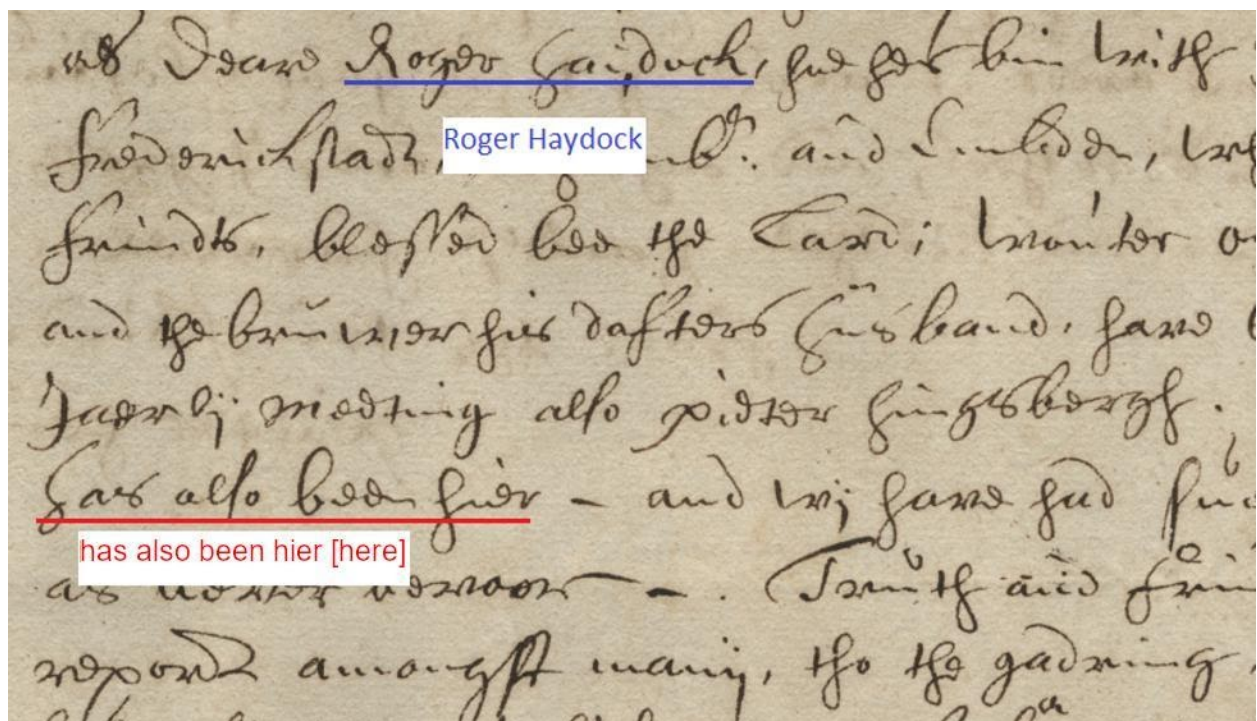 as Deare Roger Haijdock, hee hes bin with
Roger Haydock
Frederickstadt, and Embden,
frindts, blessed bee the Lard; Wouter
and the bruwer his dafters Husband, have
Jaerlij meeting also pieter hingsbergh.
has also been hier - and wij have had
has also been hier [here]
as never bevoor - . Truth and
report amongst manij, tho the gadring